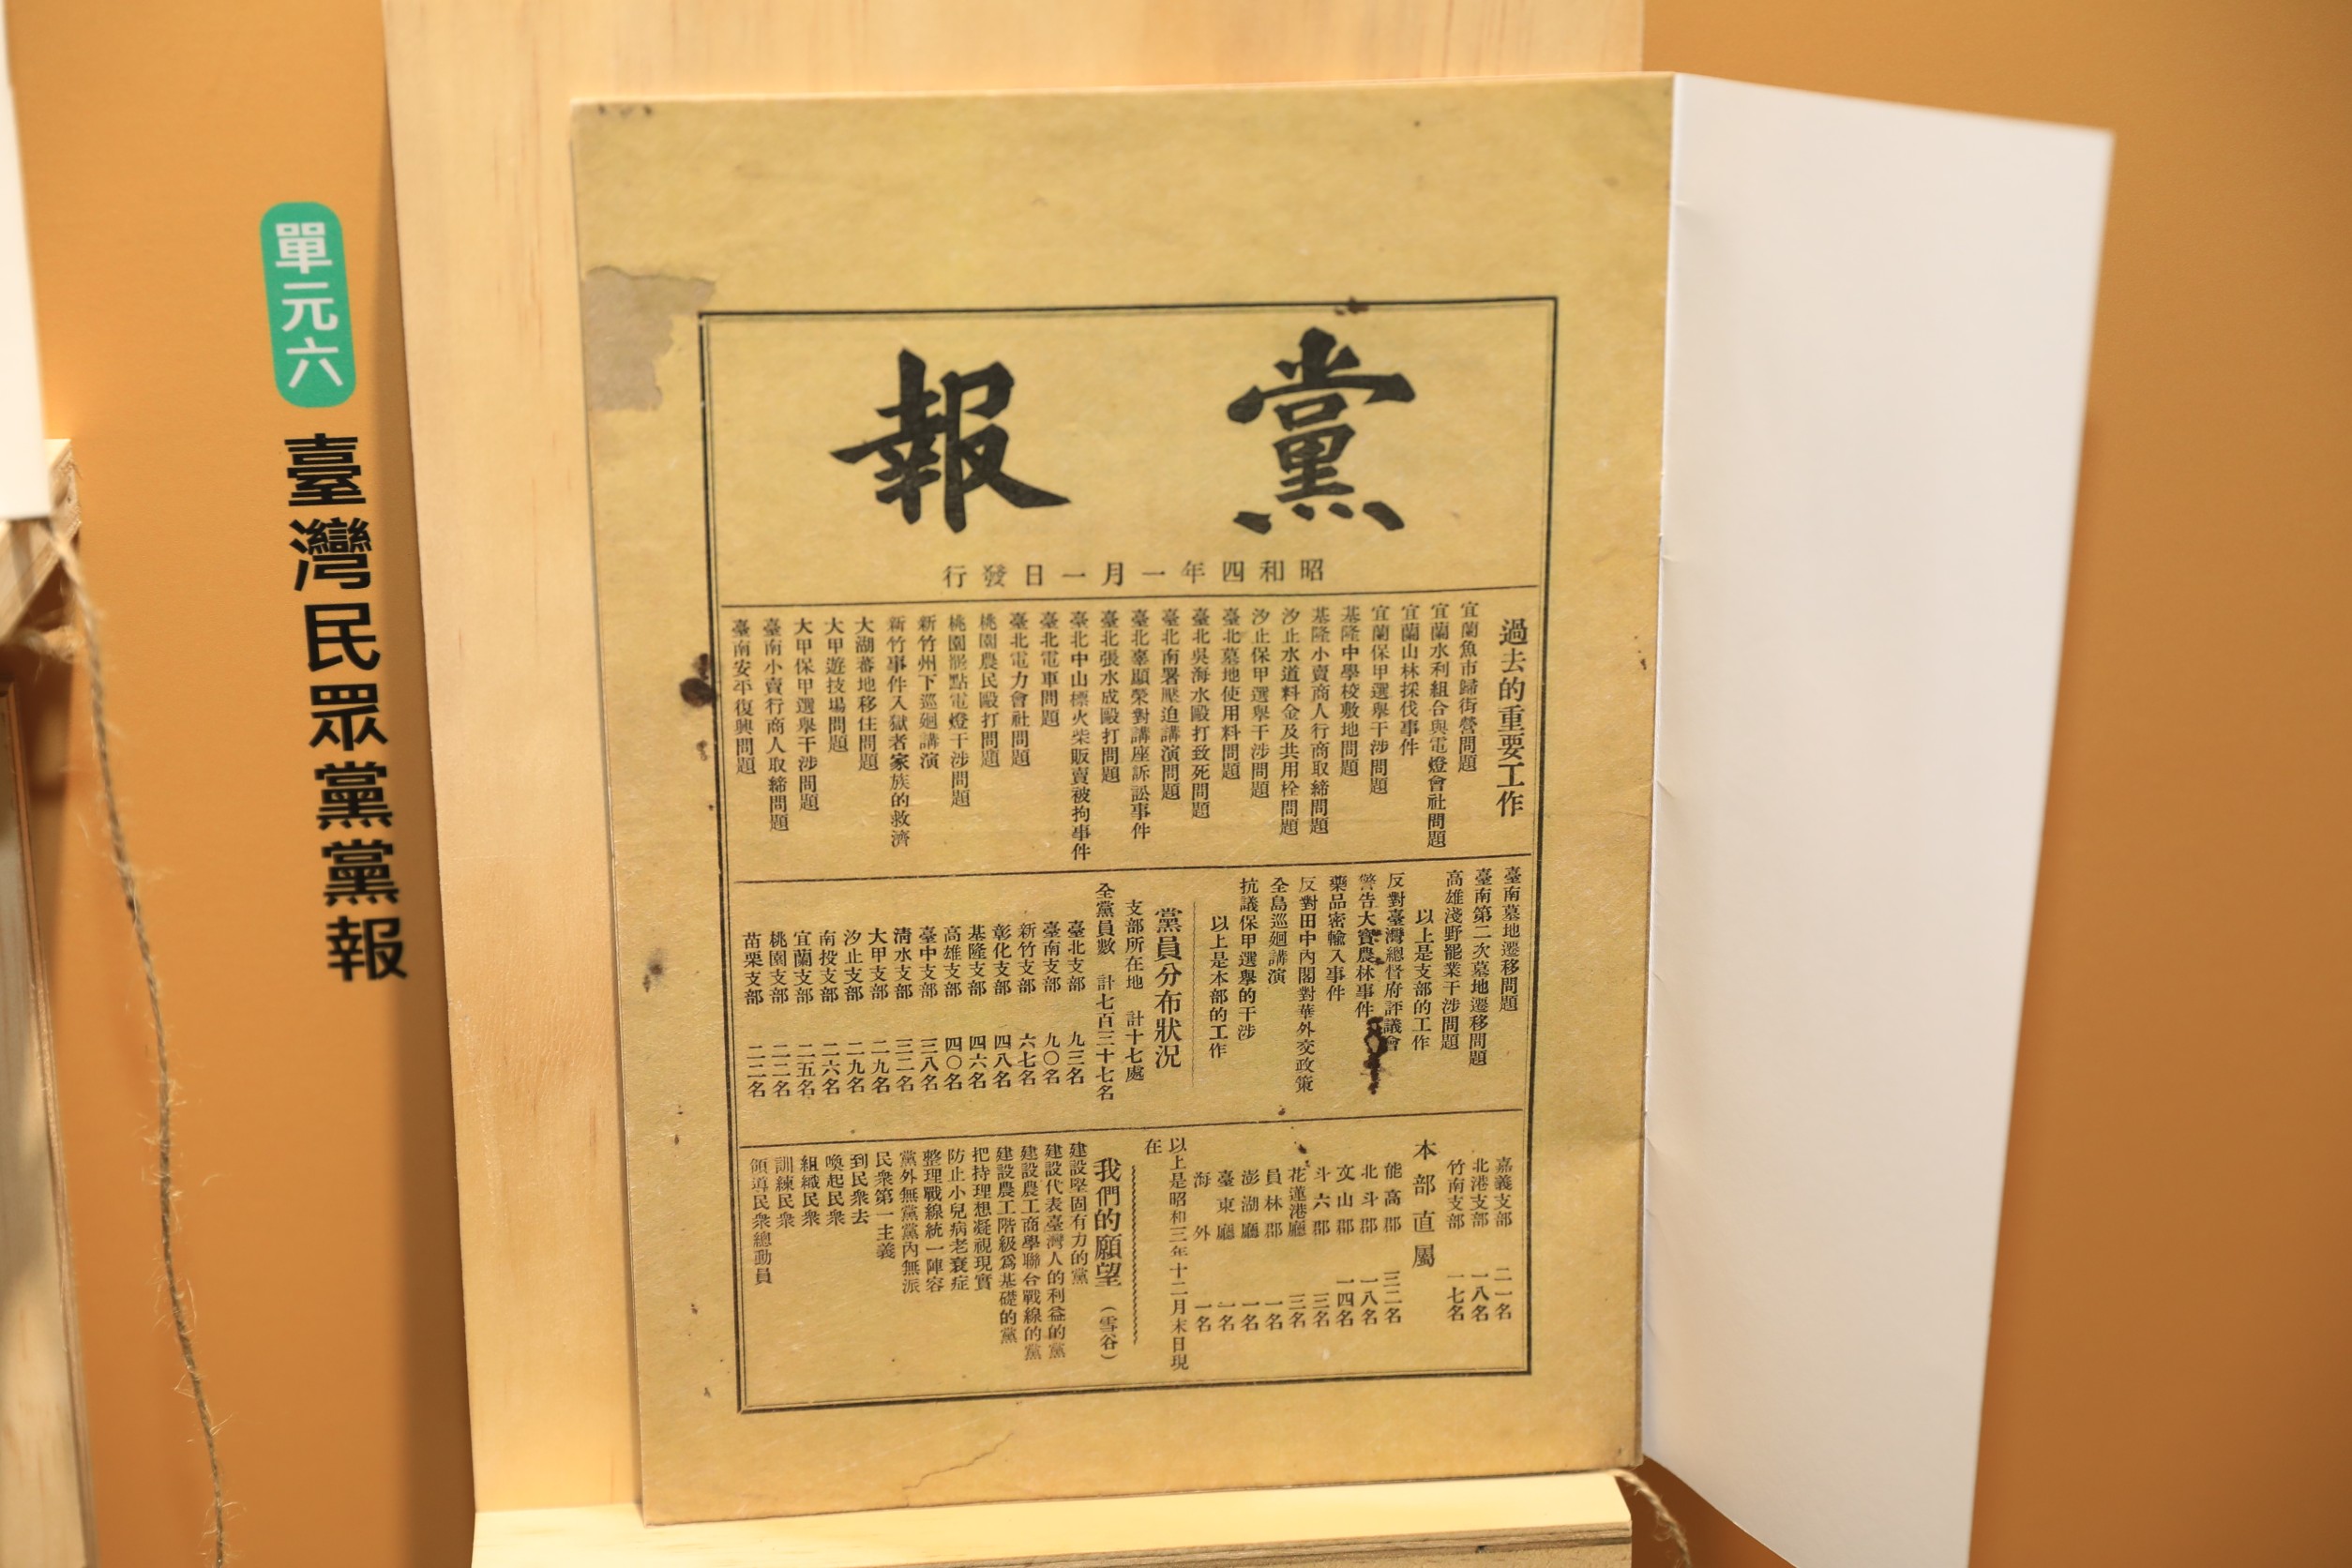 單元六
臺灣民眾黨黨報
黨報
昭和四年一月一日發行
過去的重要工作
宜蘭魚市歸街營問題
宜蘭水利組合與電燈會社問題
宜蘭山林採伐事件
宜蘭保甲選舉干涉問題
基隆中學校敷地問題
基隆小賣商人行商取締問題
汐止水道料金及共用栓問題
汐止保甲選舉干涉問題
臺北墓地使用料問題
臺北吳海水毆打致死問題
臺北南署壓迫講演問題
臺北辜顯榮對講座訴訟事件
臺北張水成毆打問題
臺北中山標火柴販賣被拘事件
臺北電車問題
臺北電力會社問題
桃園農民毆打問題
桃園罷點電燈干涉問題
新竹州下巡廻講演
新竹事件入獄者家族的救濟
大湖蕃地移住問題
大甲遊技場問題
大甲保甲選舉干涉問題
臺南小賣行商人取締問題
臺南安平復興問題
臺南墓地遷移問題
臺南第二次墓地遷移問題
高雄淺野罷業干涉問題
以上是支部的工作
反對臺灣總督府評議會
警告大寶農林事件
藥品密輸入事件
反對田中內閣對華外交政策
全島巡廻講演
抗議保甲選舉的干涉
以上是本部的工作
黨員分布狀況
支部所在地 計十七處
全黨員數 計七百三十七名
臺北支部 九三名
臺南支部 九〇名
新竹支部 六七名
彰化支部 四八名
基隆支部 四六名
高雄支部 四〇名
臺中支部 三八名
清水支部 三二名
大甲支部 二九名
汐止支部 二九名
南投支部 二六名
宜蘭支部 二五名
桃園支部 二二名
苗栗支部 二二名
嘉義支部 二一名
北港支部 一八名
竹南支部 一七名
本部直屬
能高郡 三二名
北斗郡 一八名
文山郡 一四名
斗六郡 三名
花蓮港廳 三名
員林郡 一名
澎湖廳 一名
臺東廳 一名
海外 一名
以上是昭和三年十二月末日現
在
我們的願望 （雪谷）
建設堅固有力的黨
建設代表臺灣人的利益的黨
建設農工商學聯合戰線的黨
建設農工階級爲基礎的黨
把持理想凝視現實
防止小兒病老衰症
整理戰線統一陣容
黨外無黨黨內無派
民衆第一主義
到民衆去
喚起民衆
組織民衆
訓練民衆
領導民衆總動員